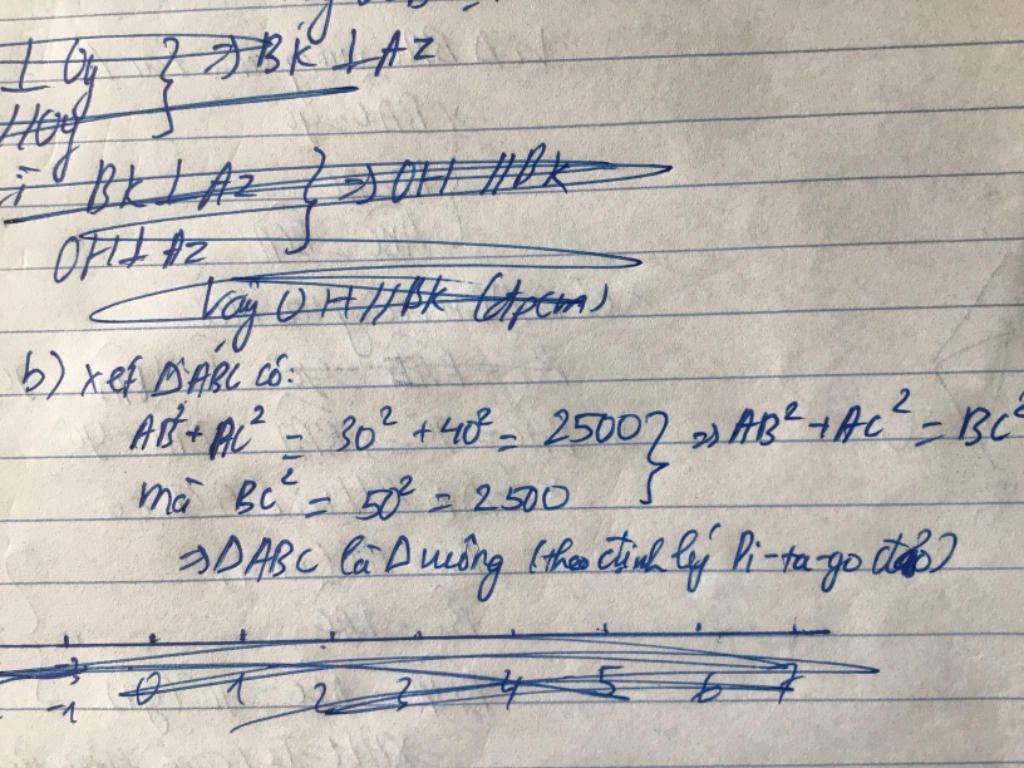 ⊥ Oy } => BK ⊥ Az
// Oy
BK ⊥ Az } => OH // BK
OH ⊥ Az
Vậy OH // BK (đpcm)
b) xét ΔABC có:
AB² + AC² = 30² + 40² = 2500 } => AB² + AC² = BC²
mà BC² = 50² = 2500
=> ΔABC là Δ vuông (theo định lý Pi-ta-go đảo)
-1 0 1 2 3 4 5 6 7